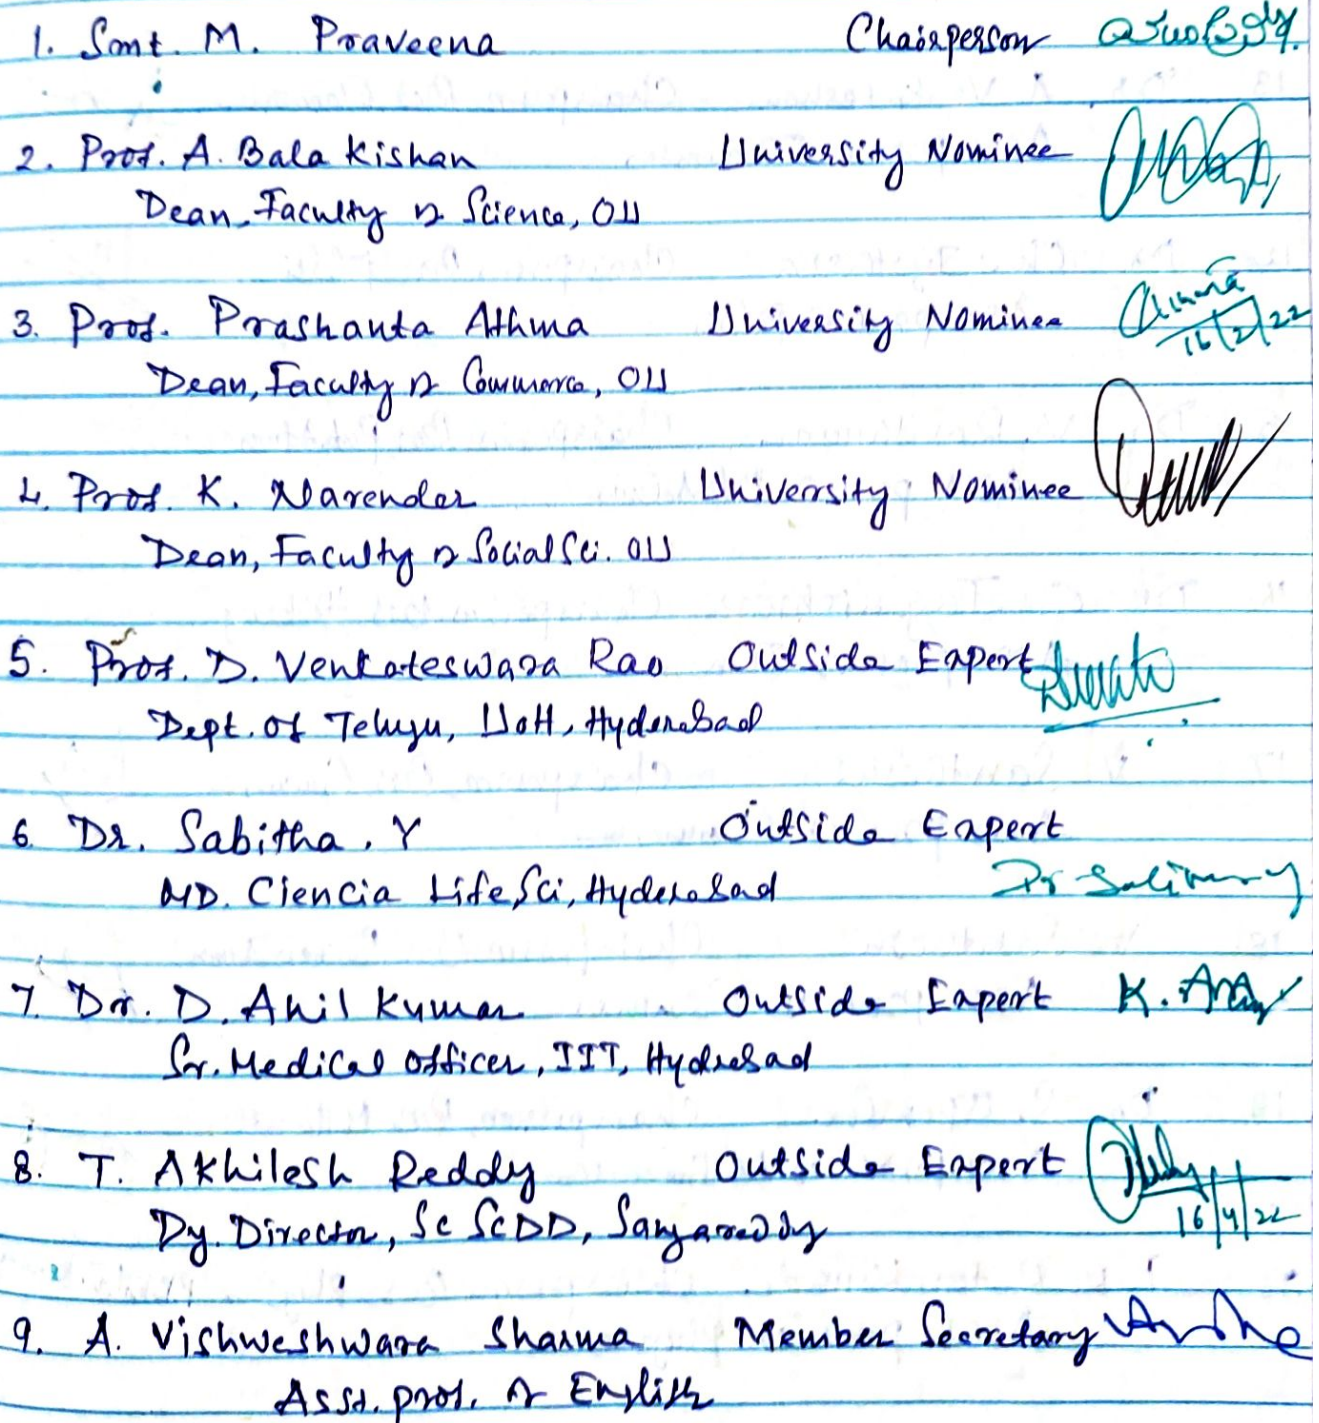 1. Smt. M. Praveena Chairperson
2. Prof. A. Bala Kishan University Nominee
Dean, Faculty of Science, OU
3. Prof. Prashanta Athma University Nominee
16/2/22
Dean, Faculty of Commerce, OU
4. Prof. K. Narender University Nominee
Dean, Faculty of Social Sci. OU
5. Prof. D. Venkateswara Rao Outside Expert
Dept. of Telugu, UoH, Hyderabad
6. Dr. Sabitha. Y Outside Expert
MD. Ciencia Life Sci, Hyderabad Dr
7. Dr. D. Anil Kumar Outside Expert K.
Sr. Medical Officer, IIT, Hydrebad
8. T. Akhilesh Reddy Outside Expert
Dy. Director, Sc ScDD, Sangareddy 16/4/22
9. A. Vishweshwara Sharma Member Secretary
Asst. prof. of English